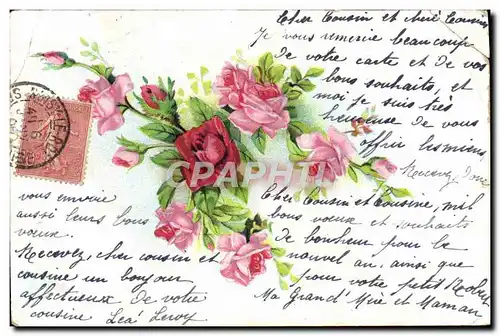 Cher Cousin et chère Cousine
Je vous remercie beaucoup
de votre carte et de vos
bons souhaits, et
moi je suis très
heureuse de vous
offrir les miens
Recevez
vous envoie
aussi leurs bons
vœux.
Recevez, cher cousin et
cousine un bonjour
affectueux de votre
cousine Léa Leroy
Cher Cousin et Cousine, mil
bons vœux et souhaits
de bonheur pour la
nouvel an, ainsi que
pour votre petit Robert
Ma Grand' Mère et Maman
CPARAMA